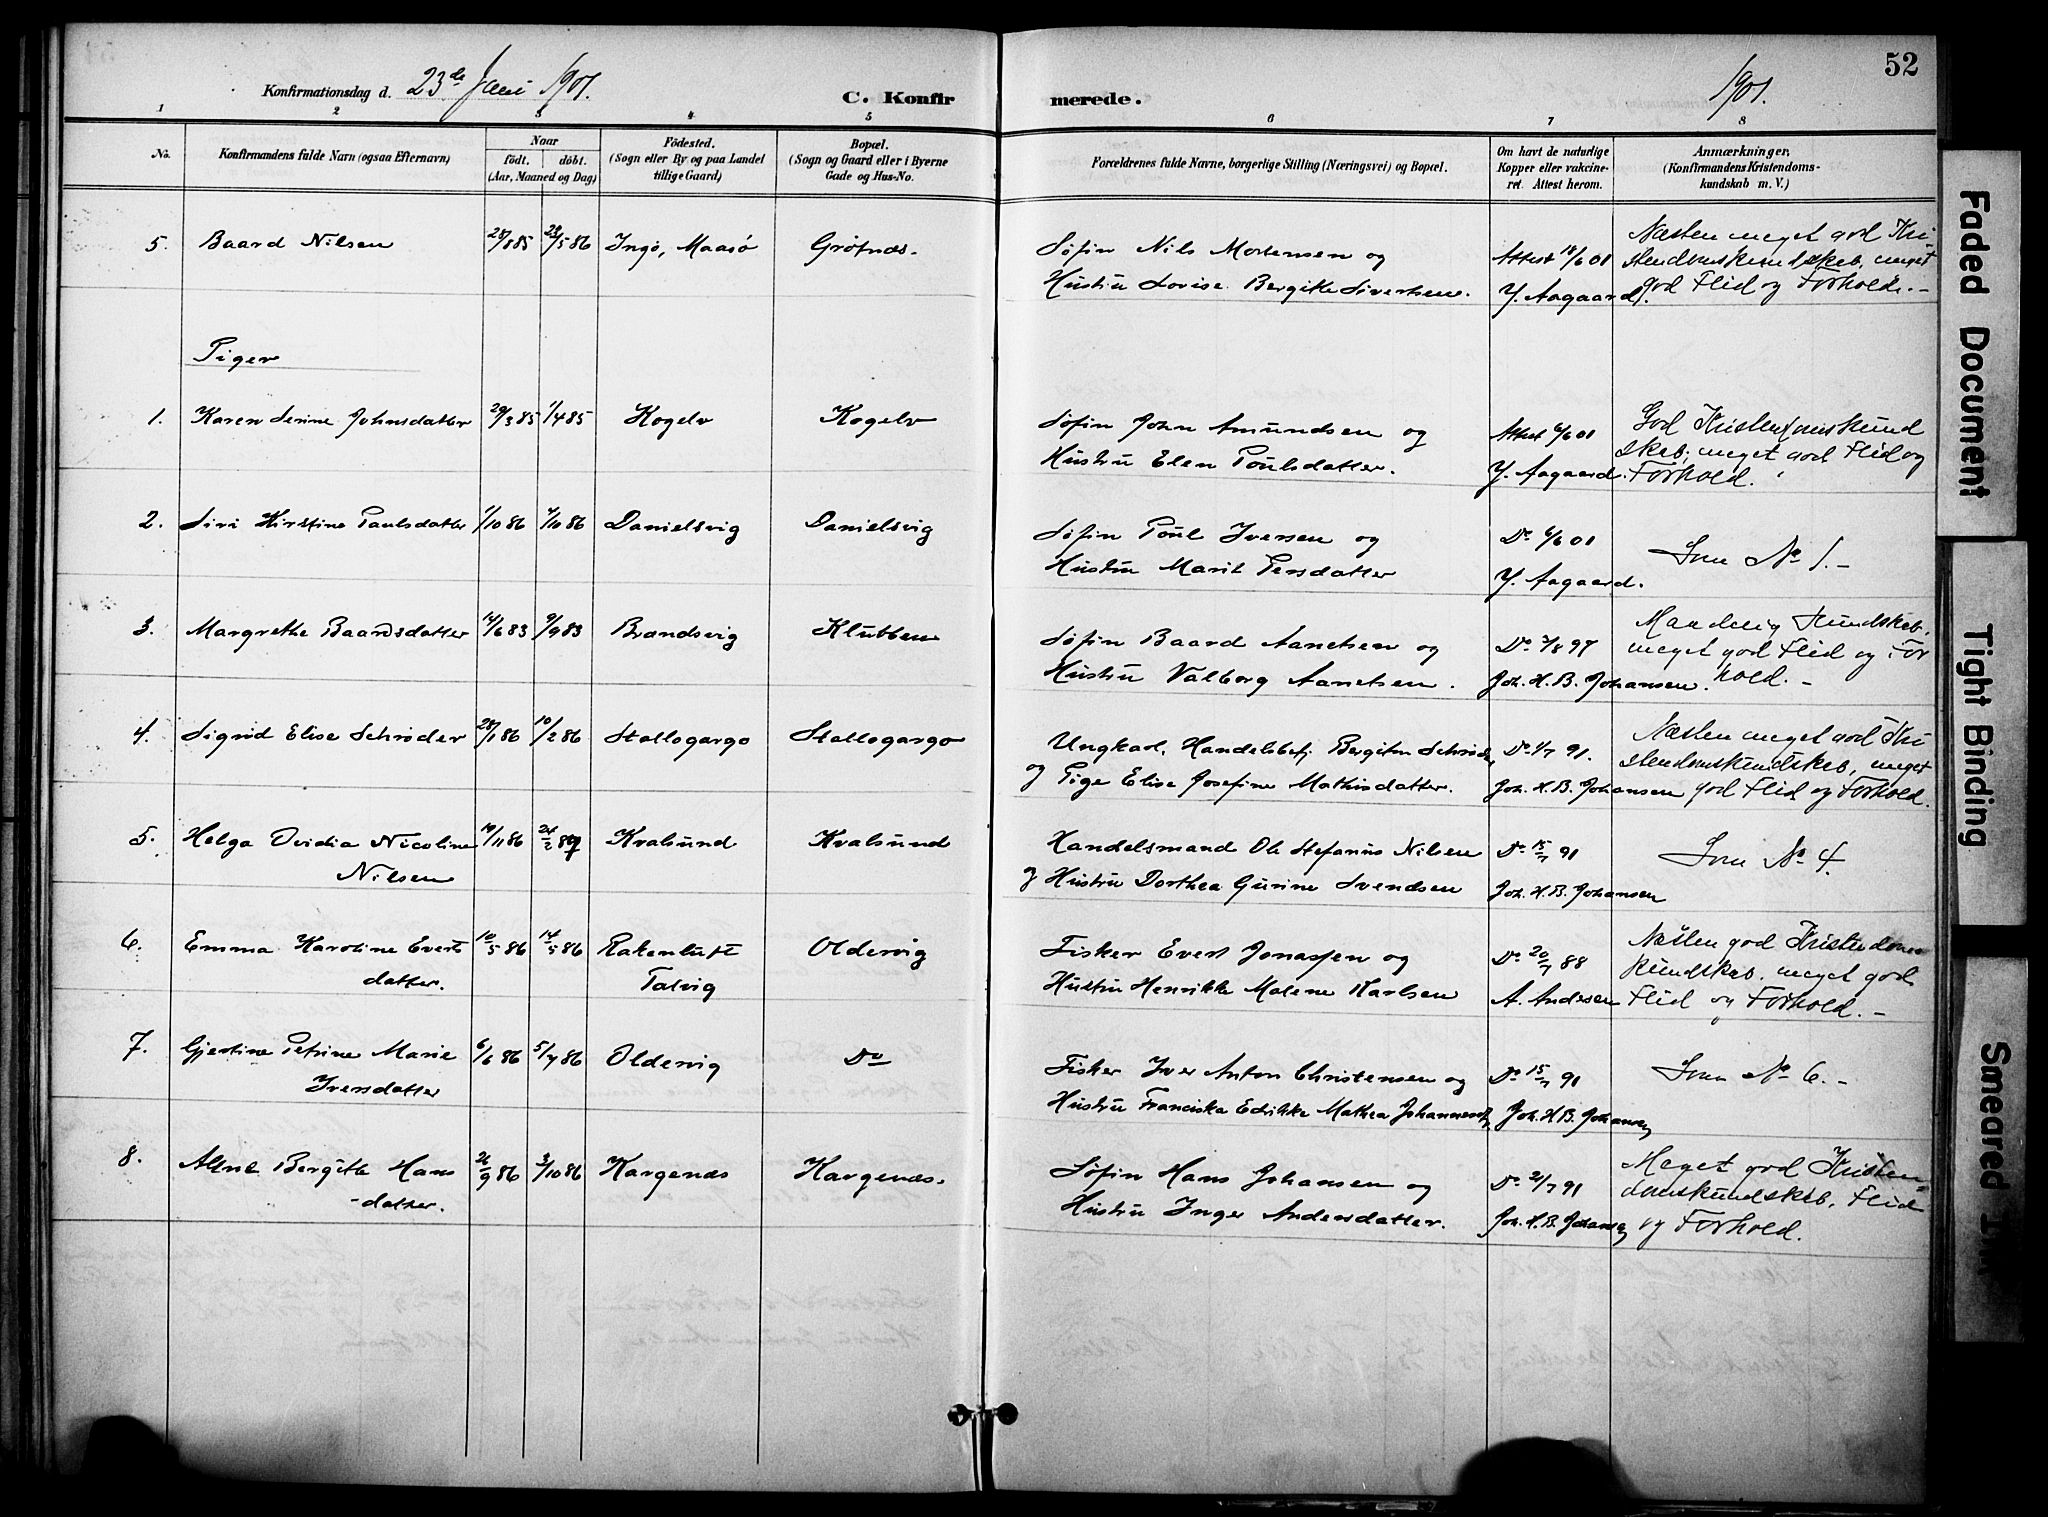 52
Konfirmationsdag d. 23de Juni 1901.
C. Konfir merede.
1901.
1 2 3 4 5 6 7 8
No.
Konfirmandens fulde Navn (ogsaa Efternavn)
Naar
födt. döbt.
(Aar, Maaned og Dag)
Födested.
(Sogn eller By og paa Landet
tillige Gaard)
Bopæl.
(Sogn og Gaard eller i Byerne
Gade og Hus-No.
Forældrenes fulde Navne, borgerlige Stilling (Næringsvei) og Bopæl.
Om havt de naturlige
Kopper eller vakcine-
ret. Attest herom.
Anmærkninger,
(Konfirmandens Kristendoms-
kundskab m. V.)
5. Baard Nilsen 28/5 86 Ingö, Maasö Gröfnæs.
Söfin Nils Mortensen og
Hustru Lovise Bergitte Sivertsen.
Attest 18/6 01
Y. Aagaard.
Næsten meget god Kri
stendomskundskab, meget
god Flid og Forhold. -
Piger
1. Karen Serine Johnsdatter 29/3 85 1/4 85 Kogelv Kogelv
Söfin John Amundsen og
Hustru Elen Poulsdatter.
Attest 6/6 01
Y. Aagaard.
God Kristendomskund
skab, meget god Flid og
Forhold.
2. Siri Kirstine Paulsdatter 1/10 86 Danielsvig Danielsvig
Söfin Poul Iversen og
Hustru Marit Persdatter
Do 6/6 01
Y. Aagaard.
Som No 1. -
3. Margrethe Baardsdatter 14/6 83 9/9 83 Brandsvig Klubben
Söfin Baard Aanetsen og
Hustru Valborg Aanetsen.
Do 3/8 97
Joh. H. B. Johansen.
Maadelig Kundskab,
meget god Flid og For
hold. -
4. Sigrid Elise Schröder 28/1 86 10/2 86 Stallogargo Stallogargo
Ungkarl, Handelsbetj. Bergiton Schröder
og Pige Elise Josefine Mathisdatter.
Do 1/7 91.
Joh. H. B. Johansen
Næsten meget god Kri
stendomskundskab, meget
god Flid og Forhold.
5. Helga Ovidia Nicoline 19/11 86 24/2 87 Kvalsund Kvalsund
Nilsen
Handelsmand Ole Stefanus Nilsen
og Hustru Dorthea Gurine Svendsen
Do 15/7 91
Joh. H. B. Johansen
Som No 4.
6. Emma Karoline Everts 10/5 86 14/5 86 Rakenluft Oldervig
datter. Talvig
Fisker Evert Jonassen og
Hustru Henrikke Malene Karlsen
Do 20/7 88
A. Andersen
Næsten god Kristendoms
kundskab, meget god
Flid og Forhold. -
7. Gjertine Petrine Marie 6/6 86 5/7 86 Oldervig Do
Iversdatter
Fisker Iver Anton Christensen og
Hustru Franciska Edrikke Mathea Johannesdt.
Do 15/7 91
Joh. H. B. Johansen
Som No 6. -
8. Bergitte Hans 21/9 86 3/10 86 Kargenæs Kargenæs.
-datter.
Söfin Hans Johansen og
Hustru Inger Andersdatter.
Do 21/7 91
Joh. H. B. Johansen
Meget god Kristen=
domskundskab, Flid
og Forhold.
Faded Document
Tight Binding
Smeared